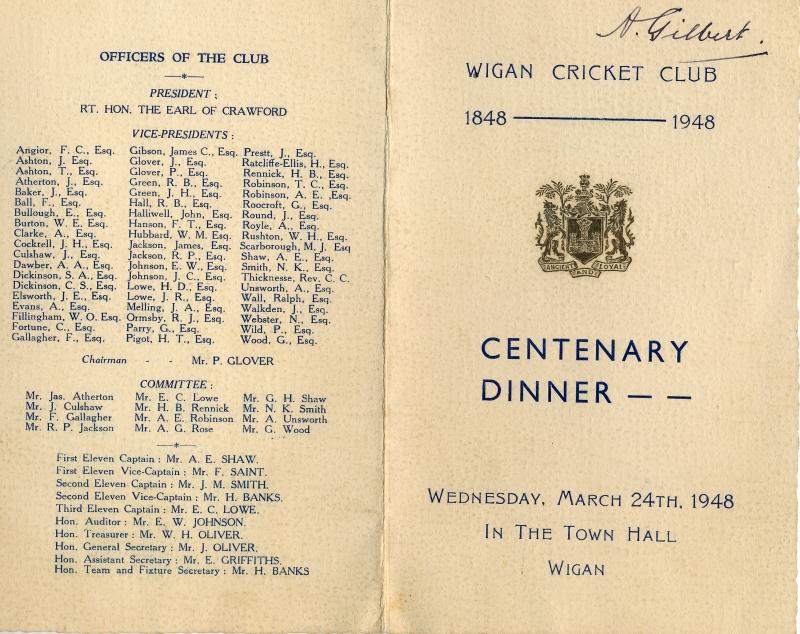 OFFICERS OF THE CLUB
PRESIDENT :
RT. HON. THE EARL OF CRAWFORD
VICE-PRESIDENTS :
Angior, F. C., Esq.
Ashton, J. Esq.
Ashton, T., Esq.
Atherton, J., Esq.
Baker, J., Esq.
Ball, F., Esq.
Bullough, E., Esq.
Burton, W. E. Esq.
Clarke, A., Esq.
Cockrell, J. H., Esq.
Culshaw, J., Esq.
Dawber, A. A., Esq.
Dickinson, S. A., Esq.
Dickinson, C. S., Esq.
Elsworth, J. E., Esq.
Evans, A., Esq.
Fillingham, W. O. Esq.
Fortune, C., Esq.
Gallagher, F., Esq.
Gibson, James C., Esq.
Glover, J., Esq.
Glover, P., Esq.
Green, R. B., Esq.
Green, J. H., Esq.
Hall, R. B., Esq.
Halliwell, John, Esq.
Hanson, F. T., Esq.
Hubbard, W. M. Esq.
Jackson, James, Esq.
Jackson, R. P., Esq.
Johnson, E. W., Esq.
Johnson, J. C., Esq.
Lowe, H. D., Esq.
Lowe, J. R., Esq.
Melling, J. A., Esq.
Ormsby, R. J., Esq.
Parry, G., Esq.
Pigot, H. T., Esq.
Prestt, J., Esq.
Ratcliffe-Ellis, H., Esq.
Rennick, H. B., Esq.
Robinson, T. C., Esq.
Robinson, A. E. ,Esq.
Roocroft, G., Esq.
Round, J., Esq.
Royle, A., Esq.
Rushton, W. H., Esq.
Scarborough, M. J. Esq
Shaw, A. E., Esq.
Smith, N. K., Esq.
Thicknesse, Rev. C. C.
Unsworth, A., Esq.
Wall, Ralph, Esq.
Walkden, J., Esq.
Webster, N., Esq.
Wild, P., Esq.
Wood, G., Esq.
Chairman - - Mr. P. GLOVER
COMMITTEE :
Mr. Jas. Atherton
Mr. J. Culshaw
Mr. F. Gallagher
Mr. R. P. Jackson
Mr. E. C. Lowe
Mr. H. B. Rennick
Mr. A. E. Robinson
Mr. A. G. Rose
Mr. G. H. Shaw
Mr. N. K. Smith
Mr. A. Unsworth
Mr. G. Wood
First Eleven Captain : Mr. A. E. SHAW.
First Eleven Vice-Captain : Mr. F. SAINT.
Second Eleven Captain : Mr. J. M. SMITH.
Second Eleven Vice-Captain : Mr. H. BANKS.
Third Eleven Captain : Mr. E. C. LOWE.
Hon. Auditor : Mr. E. W. JOHNSON.
Hon. Treasurer : Mr. W. H. OLIVER.
Hon. General Secretary : Mr. J. OLIVER.
Hon. Assistant Secretary : Mr. E. GRIFFITHS.
Hon. Team and Fixture Secretary : Mr. H. BANKS
A. Gilbert.
WIGAN CRICKET CLUB
1848 — 1948
ANCIENT AND LOYAL
CENTENARY
DINNER — —
WEDNESDAY, MARCH 24TH, 1948
IN THE TOWN HALL
WIGAN